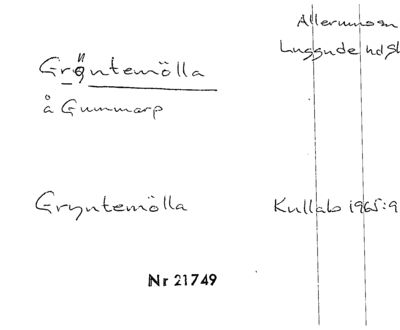 Allerumssn
Luggude hd SL
Gröntemölla
å Gummarp
Gryntemölla
Kullab 1965:9
Nr 21749